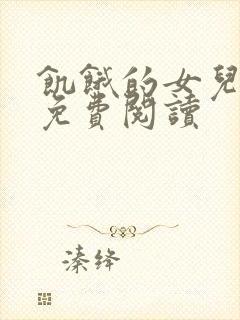 飢餓的女兒
免費閱讀
溱绛